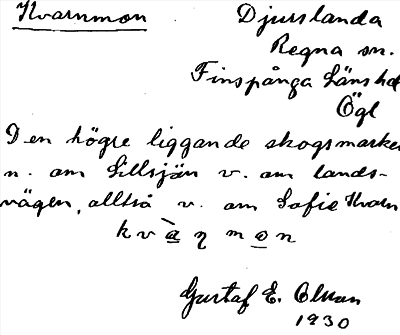 Kvarnmon
Djurslanda
Regna sn.
Finspånga Länshd
Ögl
Den högre liggande skogsmarken
n. om Lillsjön v. om lands-
vägen, alltså v. om Sofie Kvarn
kvàƞmon
Gustaf E. Olsson
1930